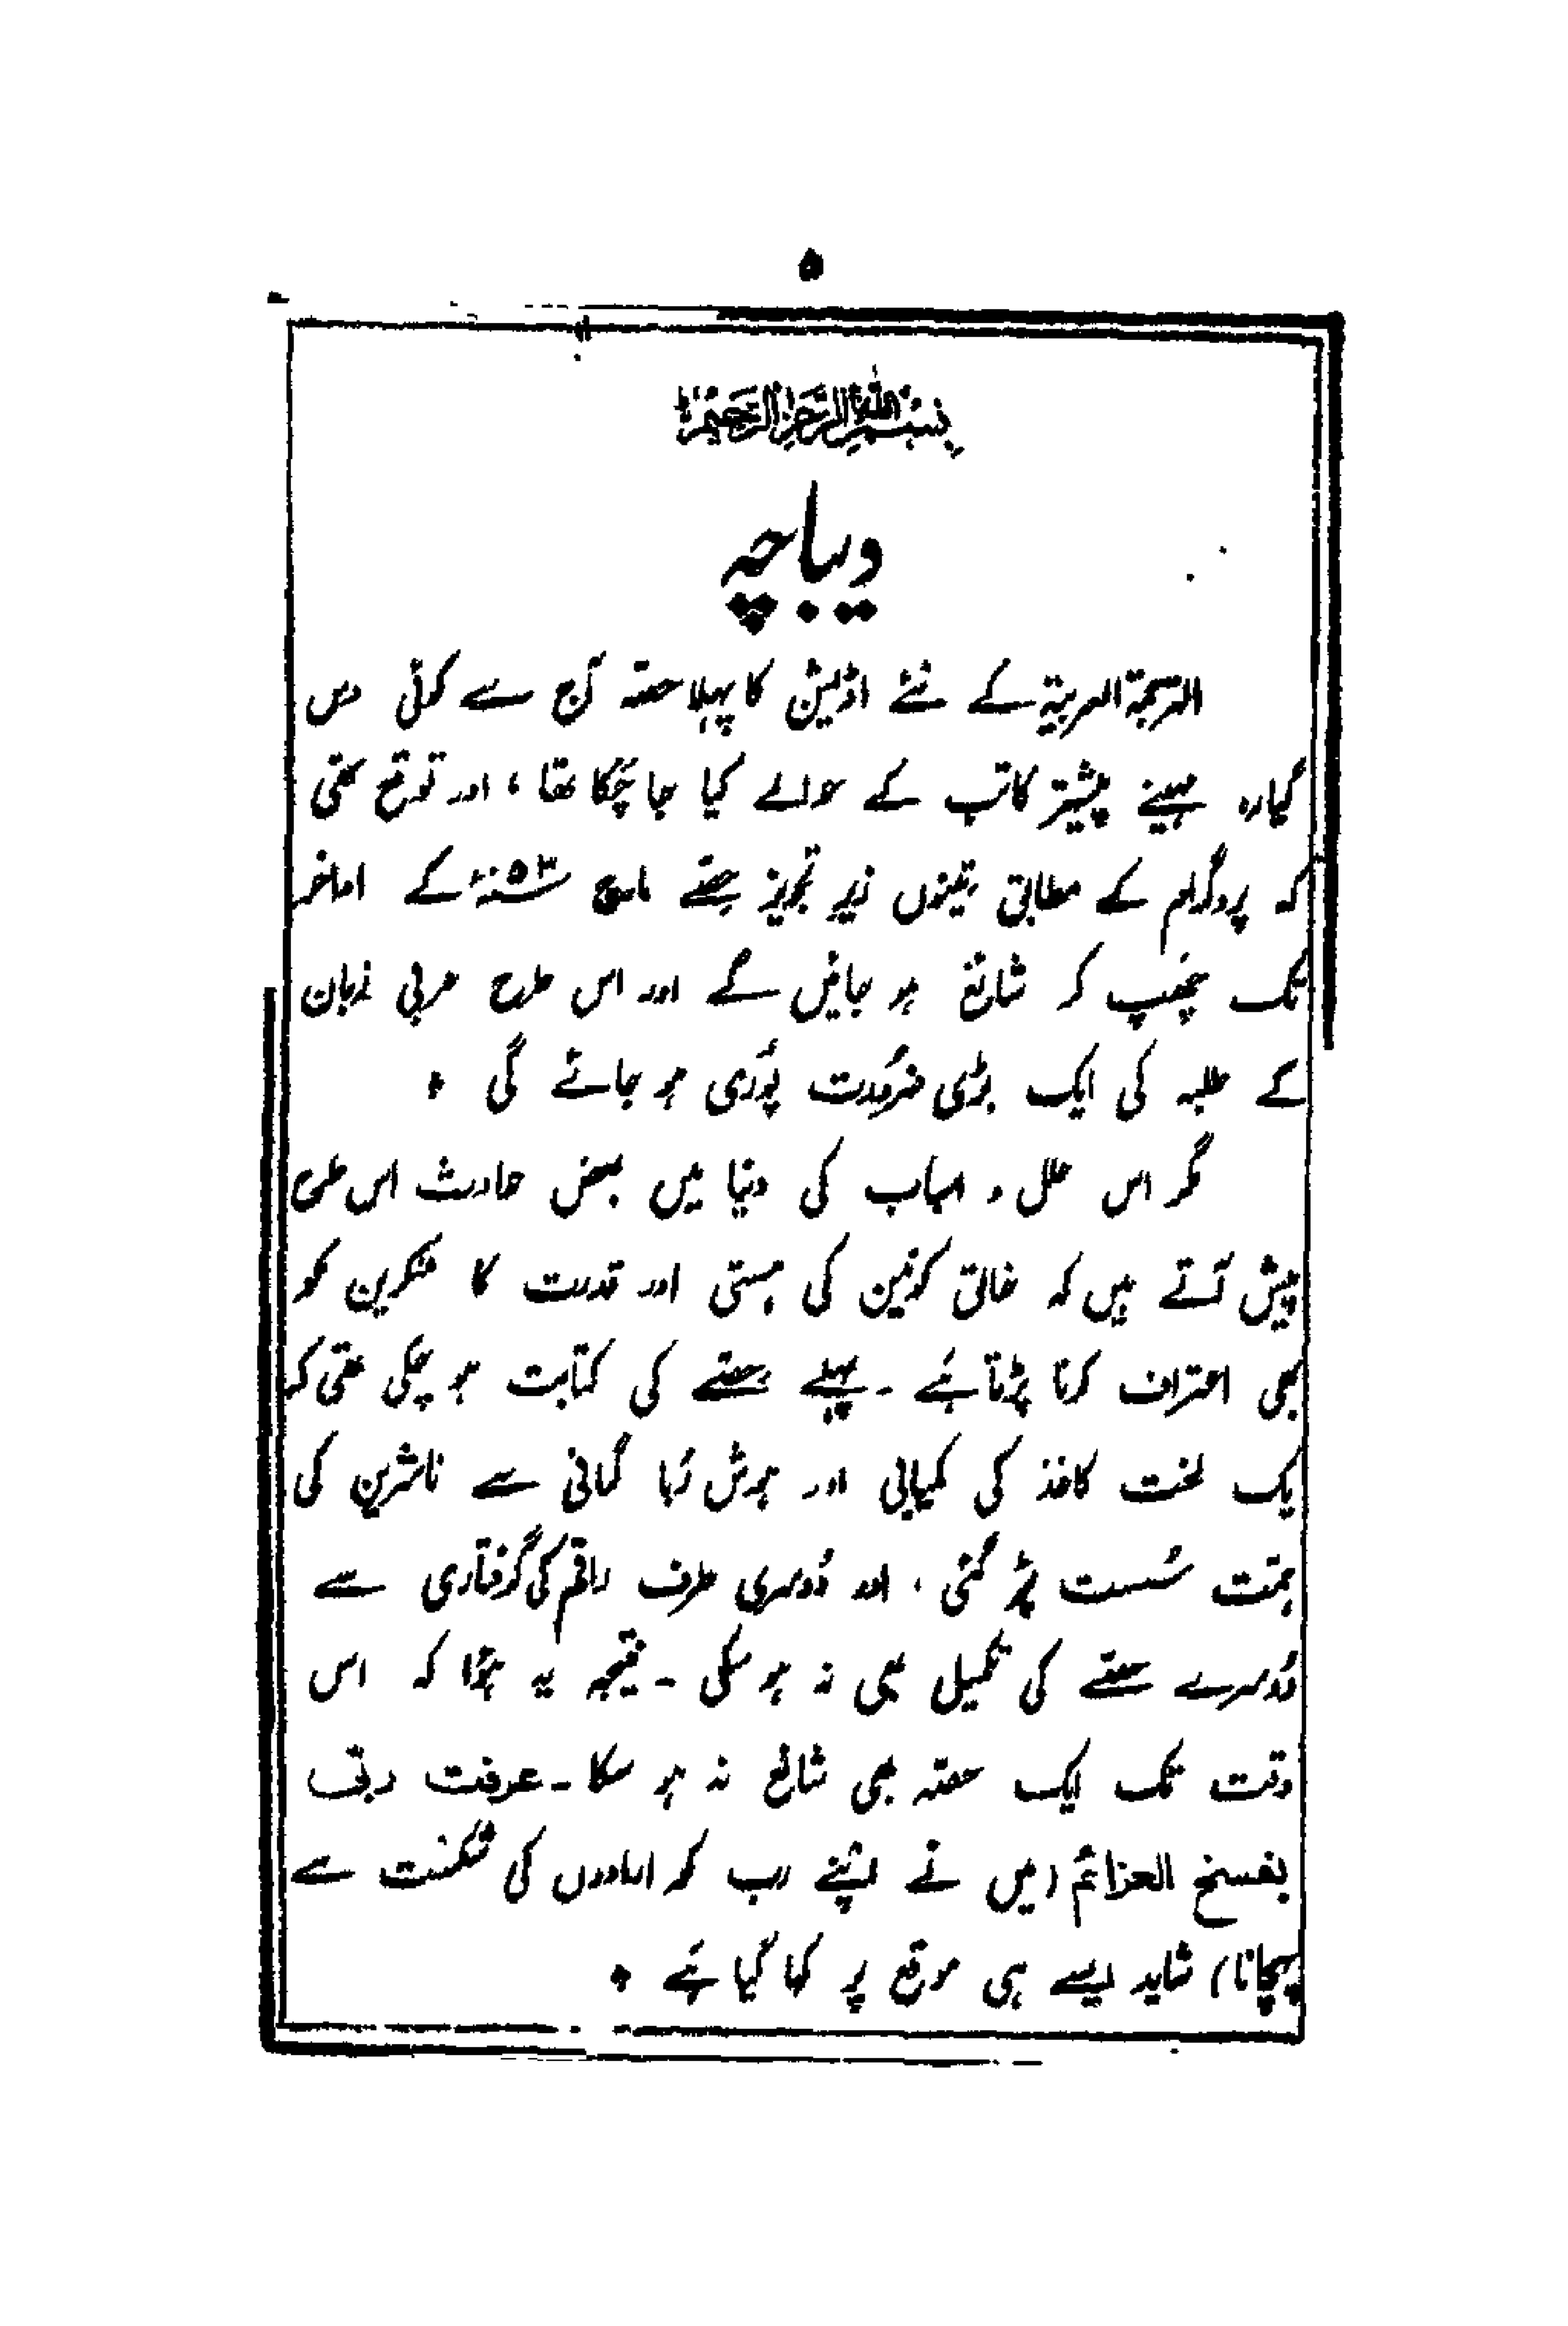 ۵
بِسْمِ اللهِ الرَّحْمٰنِ الرَّحِيْمِ
دیباچہ
الترجمۃ العربیۃ کے نئے اڈیشن کا پہلا حصّہ آج سے کوئی دس
گیارہ مہینے پیشتر کاتب کے حوالے کیا جا چُکا تھا، اور توقع تھی
کہ پروگرام کے مطابق تینوں زیرِ تجویز حِصّے مارچ ۵۳ء کے اواخر
تک چھپ کر شائع ہو جائیں گے اور اس طرح عربی زبان
کے طلبہ کی ایک بڑی ضرُورت پُوری ہو جائے گی ٭
مگر اس علل و اسباب کی دنیا میں بعض حادث اس طرح
پیش آتے ہیں کہ خالق کونین کی ہستی اور قدرت کا منکرین کو
بھی اعتراف کرنا پڑتا ہَے ۔ پہلے حِصّے کی کتابت ہو چکی تھی کہ
یک لخت کاغذ کی کمیابی اور ہوش رُبا گرانی سے ناشرین کی
ہمّت سُست پڑ گئی ، اور دُوسری طرف راقم کی گرفتاری سے
دُوسرے حصّے کی تکمیل بھی نہ ہو سکی ۔ نتیجہ یہ ہؤا کہ اس
وقت تک ایک حصّہ بھی شائع نہ ہو سکا ۔ عرفت ربّی
بفسخ العزائم (میں نے اپنے رب کو ارادوں کی شکست سے
پہچانا) شاید ایسے ہی موقع پر کہا گیا ہَے ٭